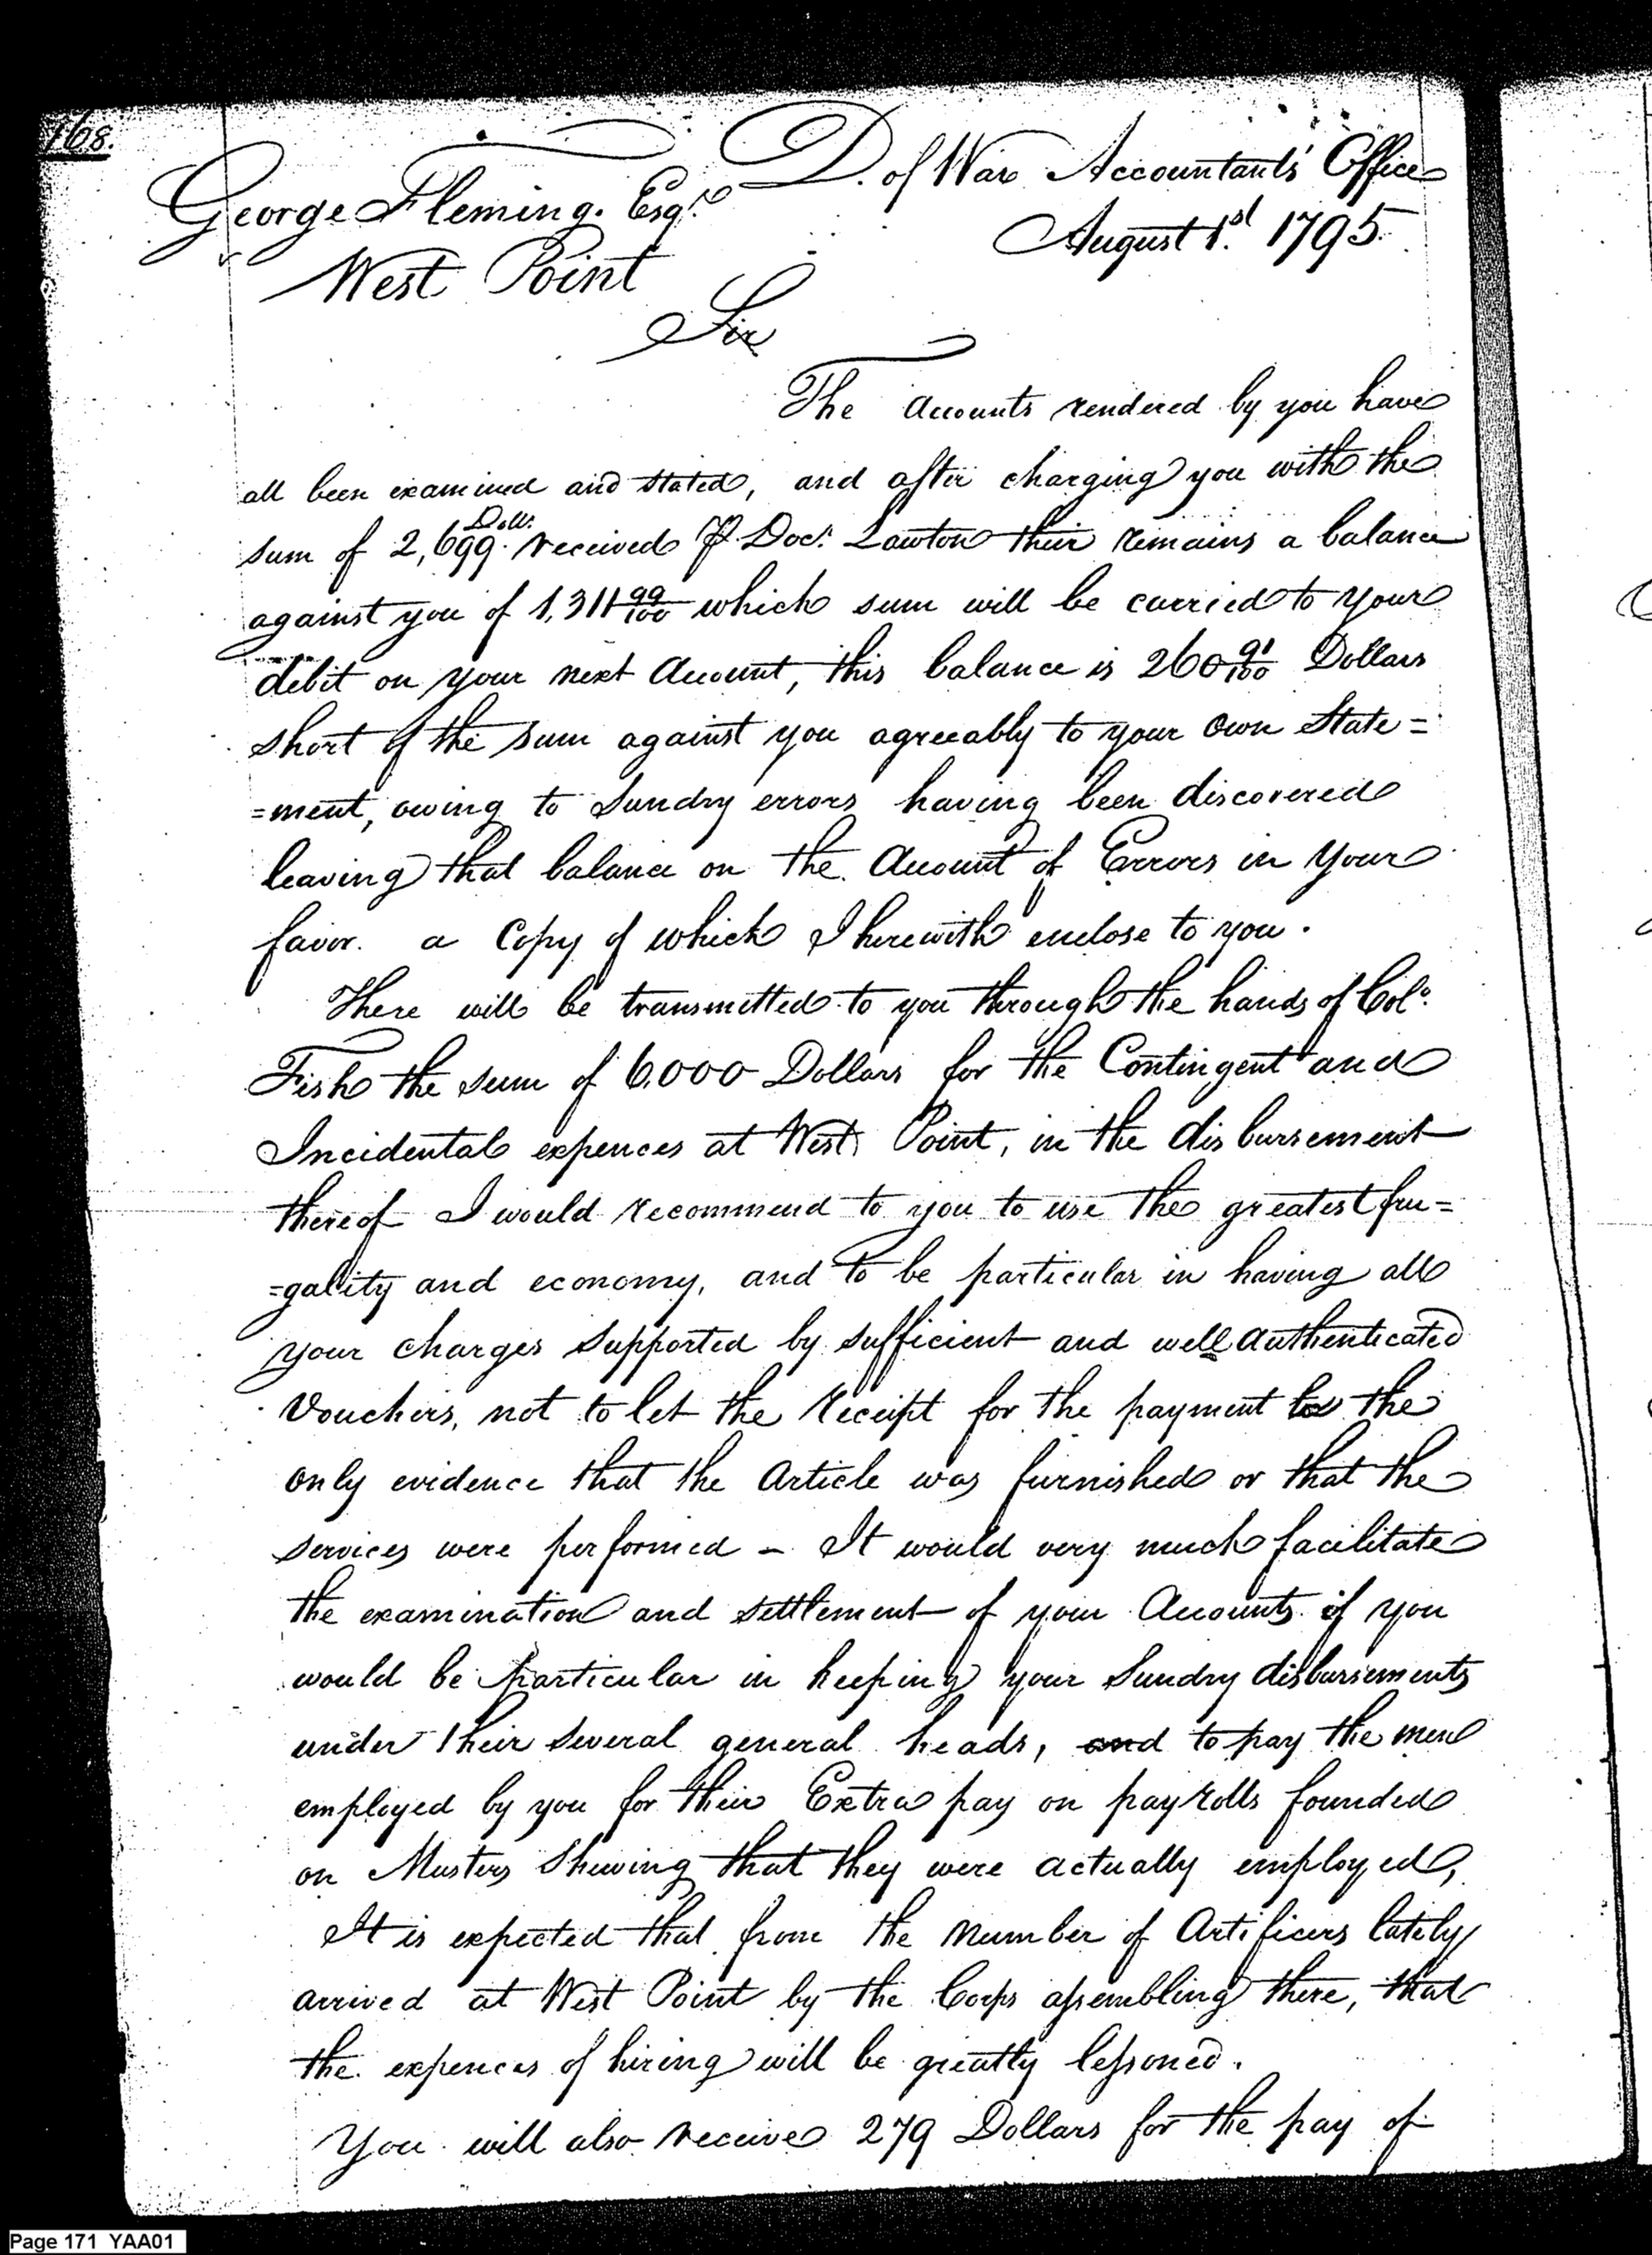 168.
D. of War Accountants' Office
George Fleming. Esqre
August 1st. 1795.
West Point
Sir
The accounts rendered by you have
all been examined and stated, and after charging you with the
sum of 2,699 Dolls. received ⅌ Doct. Lawton their remains a balance
against you of 1,311 99/100 which sum will be carried to your
debit on your next Account, this balance is 260 91/100 Dollars
short of the sum against you agreeably to your own State=
=ment, owing to Sundry errors having been discovered
leaving that balance on the Account of Errors in your
favor. a Copy of which I herewith enclose to you.
There will be transmitted to you through the hands of Colo.
Fish the sum of 6,000 Dollars for the Contingent and
Incidental expences at West Point, in the disbursement
thereof I would recommend to you to use the greatest fru=
=gality and economy, and to be particular in having all
your charges supported by sufficient and well authenticated
Vouchers, not to let the receipt for the payment be the
only evidence that the Article was furnished or that the
services were performed – It would very much facilitate
the examination and settlement of your Accounts if you
would be particular in keeping your Sundry disbursements
under their several general heads, and to pay the men
employed by you for their Extra pay on pay rolls founded
on Musters Shewing that they were actually employed,
It is expected that from the number of Artificers lately
arrived at West Point by the Corps assembling there, that
the expences of hiring will be greatly lessoned.
You will also receive 279 Dollars for the pay of
Page 171 YAA01